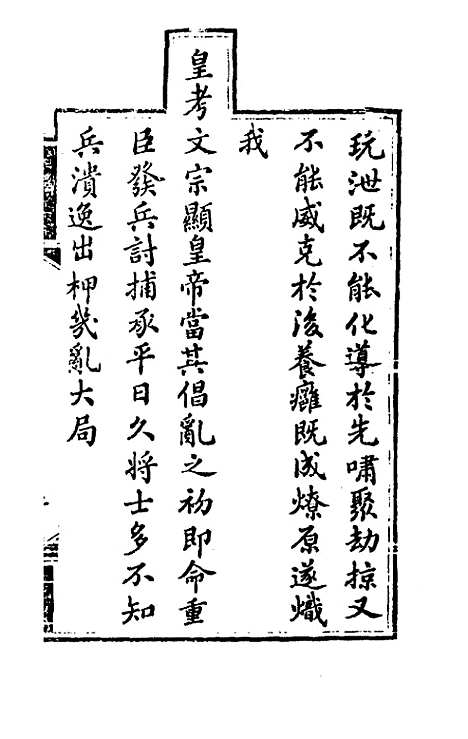 玩泄既不能化導於先嘯聚劫掠又
不能威克於後養癰既成燎原遂熾
我
皇考文宗顯皇帝當其倡亂之初即命重
臣發兵討捕承平日久將士多不知
兵潰逸出柙幾亂大局